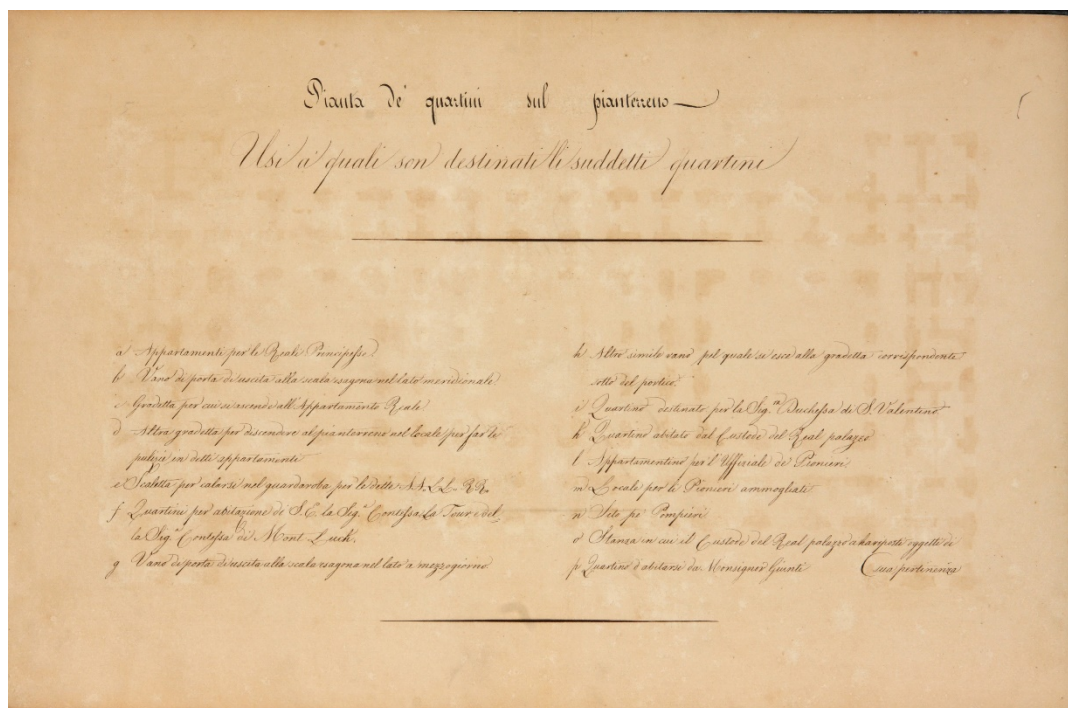 Pianta de' quartini sul pianterreno
Usi a' quali son destinati li suddetti quartini
a Appartamenti per le Reali Principesse
b Vano di porta di uscita alla scala esagona nel lato meridionale
c Gradetta per cui si ascende all'Appartamento Reale
d Altra gradetta per discendere al pianterreno nel locale per far le
pulizie in dette appartamente
e Scaletta per calarsi nel guardaroba per le dette AA. LL. RR.
f Quartini per abitazione di S. E. la Sig.a Contessa La Tour e del_
la Sig.a Contessa di Mont Luch.
g Vano di porta di uscita alla scala esagona nel lato a mezzogiorno
h Altro simile vano pel quale si esce alla gradetta corrispondente
sotto del portico.
i Quartino destinato per la Sig.ra Duchessa di S. Valentino
k Quartino abitato dal Custode del Real palazzo
l Appartamentino per l'Uffiziale de' Pionieri
m Locale per li Pionieri ammogliati
n Sito pe' Pompieri
o Stanza in cui il Custode del Real palazzo a riposte oggetti di
p Quartino d'abitarsi da Monsignor Giunti (sua pertinenza